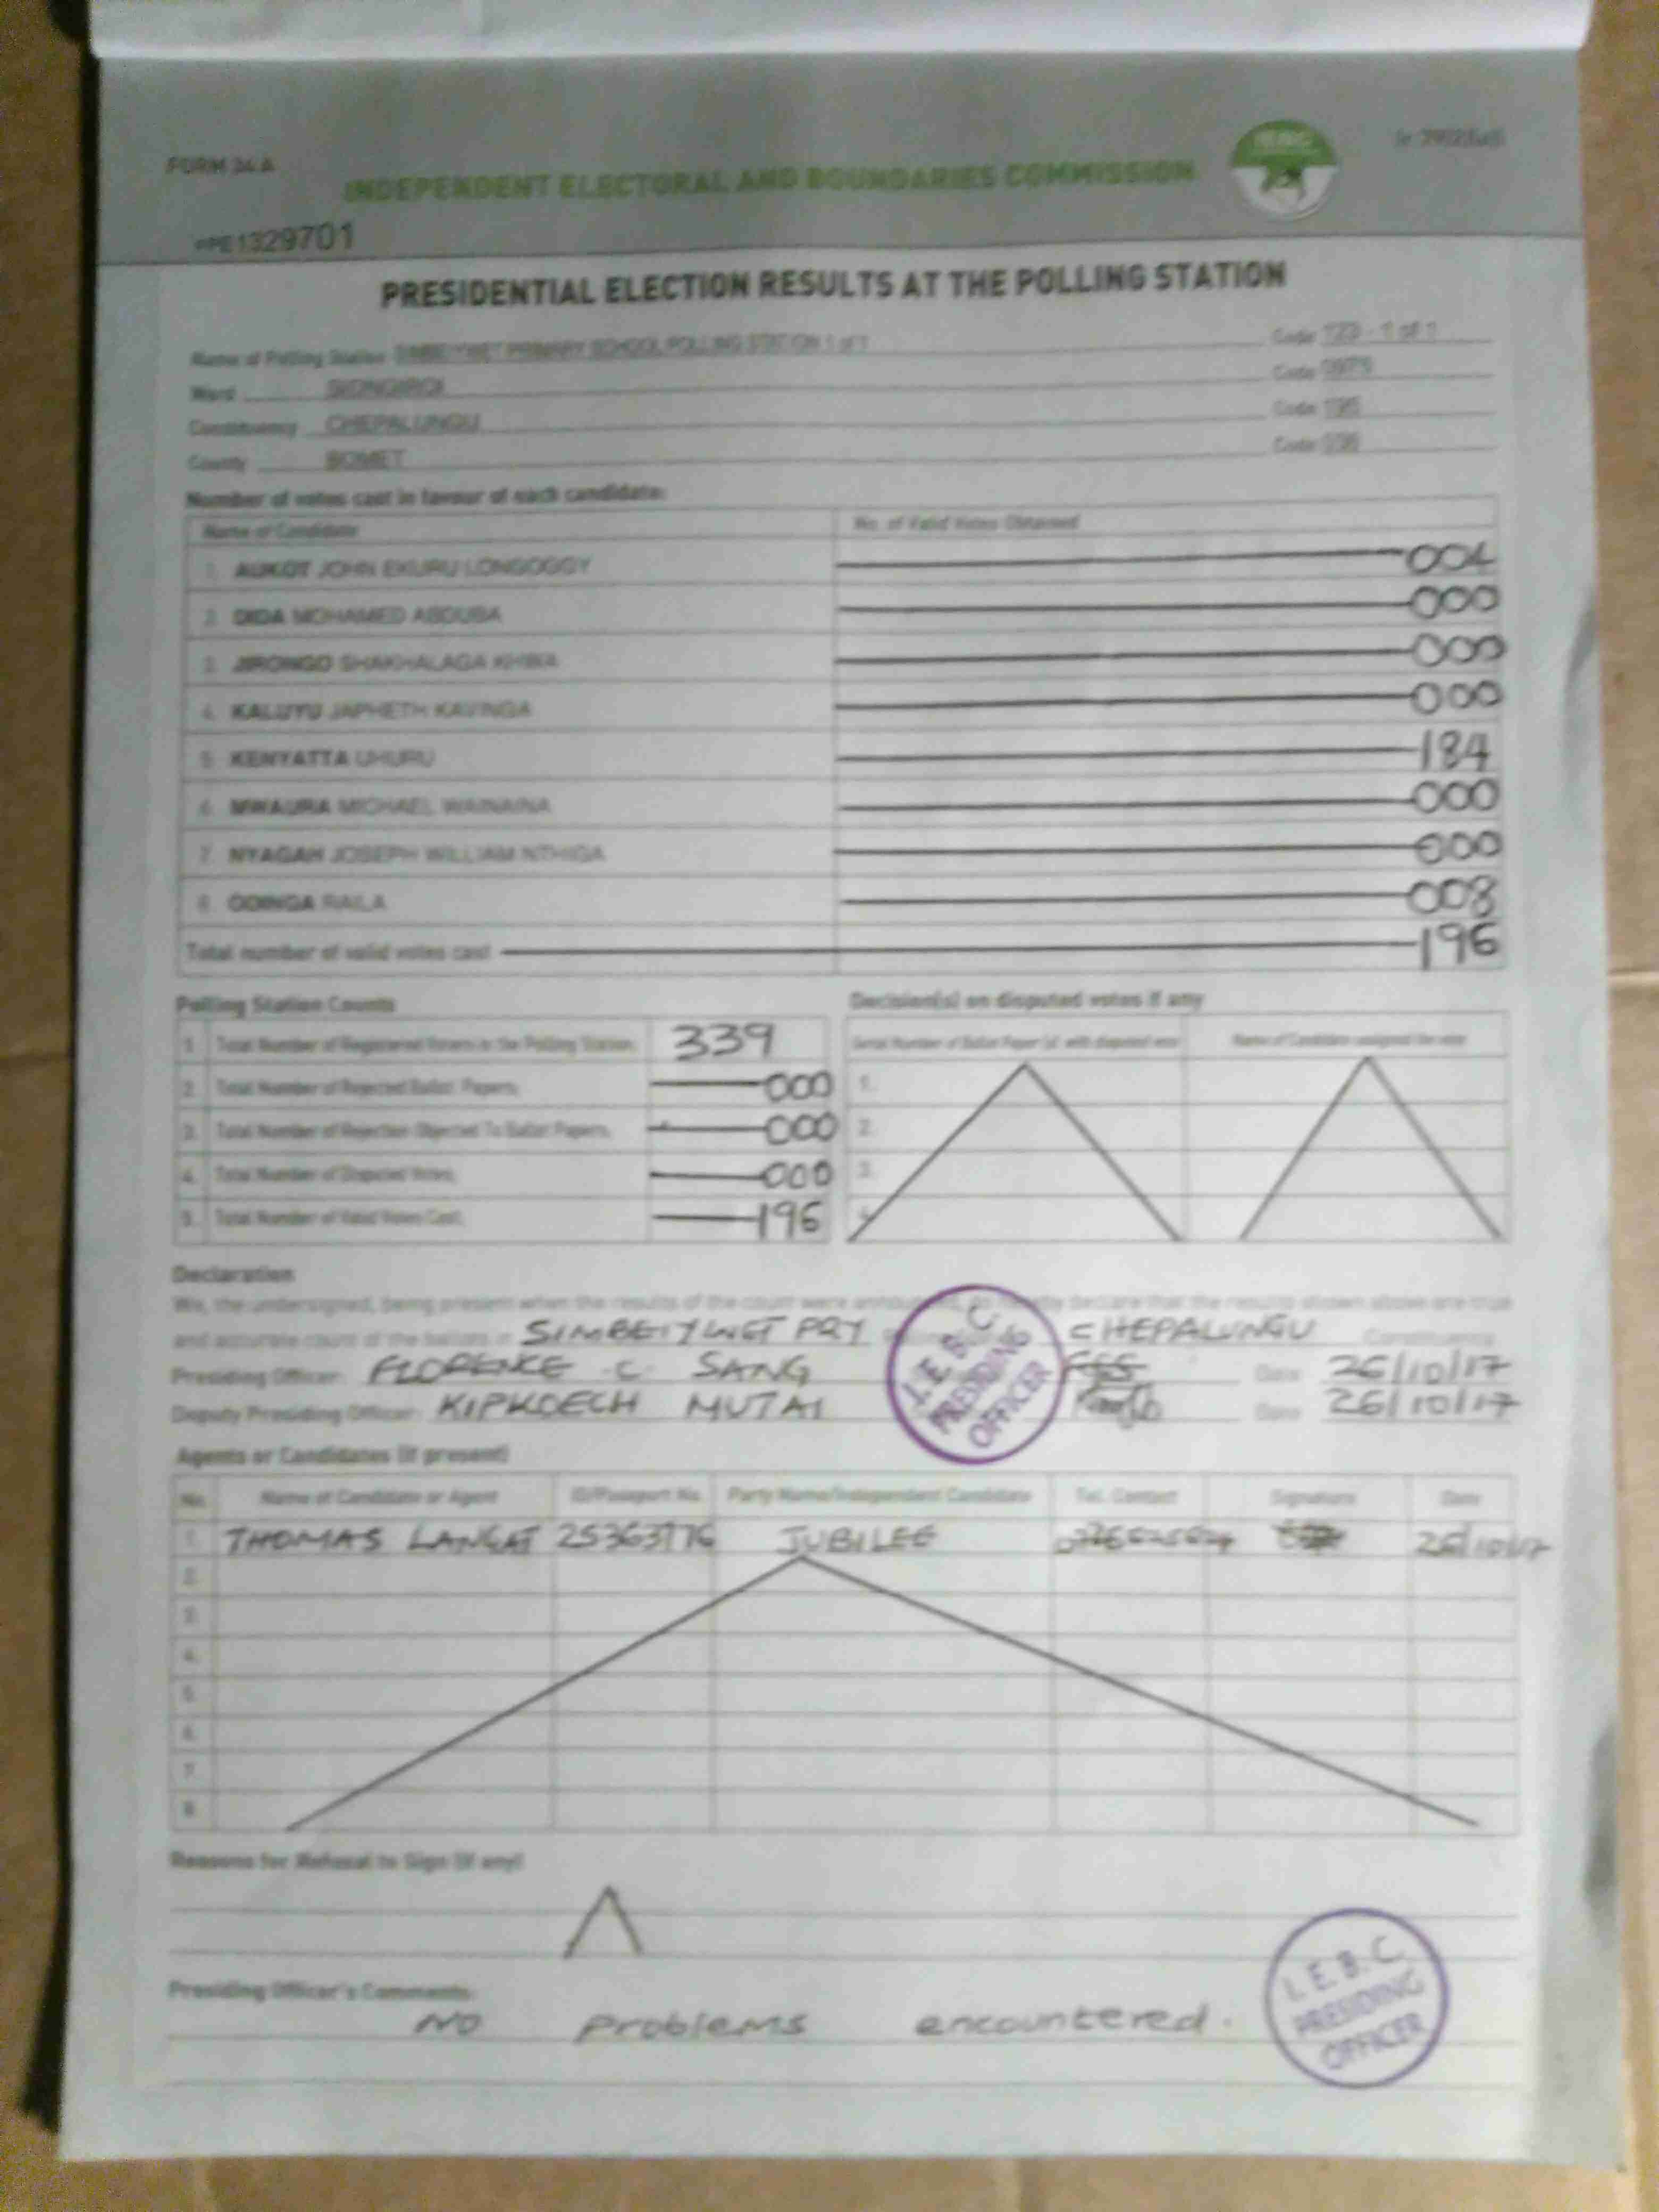 FORM 34A
INDEPENDENT ELECTORAL AND BOUNDARIES COMMISSION
PE1329701
PRESIDENTIAL ELECTION RESULTS AT THE POLLING STATION
Name of Polling Station SIMBEIYWET PRIMARY SCHOOL POLLING STATION 1 of 1 Code 123 - 1 of 1
Ward SIONGIROI Code 0975
Constituency CHEPALUNGU Code 195
County BOMET Code 036
Number of votes cast in favour of each candidate:
Name of Candidate No. of Valid Votes Obtained
1. AUKOT JOHN EKURU LONGOGGY 004
2. DIDA MOHAMED ABDUBA 000
3. JIRONGO SHAKHALAGA KHWA 000
4. KALUYU JAPHETH KAVINGA 000
5. KENYATTA UHURU 184
6. MWAURA MICHAEL WAINAINA 000
7. NYAGAH JOSEPH WILLIAM NTHIGA 000
8. ODINGA RAILA 008
Total number of valid votes cast 196
Polling Station Counts
1. Total Number of Registered Voters in the Polling Station 339
2. Total Number of Rejected Ballot Papers 000
3. Total Number of Rejection Objected To Ballot Papers 000
4. Total Number of Disputed Votes 000
5. Total Number of Valid Votes Cast 196
Decision(s) on disputed votes if any
Serial Number of Ballot Paper (s) with disputed vote Name of Candidate assigned the vote
1.
2.
3.
4.
Declaration
We, the undersigned, being present when the results of the count were announced, do hereby declare that the results shown above are true
and accurate count of the ballots in SIMBEIYWET PRY CHEPALUNGU Constituency
Presiding Officer: FLORENCE C. SANG Date 26/10/17
Deputy Presiding Officer: KIPKOECH MUTAI Date 26/10/17
I. E. B. C
PRESIDING
OFFICER
Agents or Candidates (if present)
No. Name of Candidate or Agent ID/Passport No. Party Name/Independent Candidate Tel. Contact Signature Date
1. THOMAS LANGAT 25363776 JUBILEE 26/10/17
2.
3.
4.
5.
6.
7.
8.
Reasons for Refusal to Sign (if any)
Presiding Officer's Comments:
NO problems encountered.
I. E. B. C
PRESIDING
OFFICER